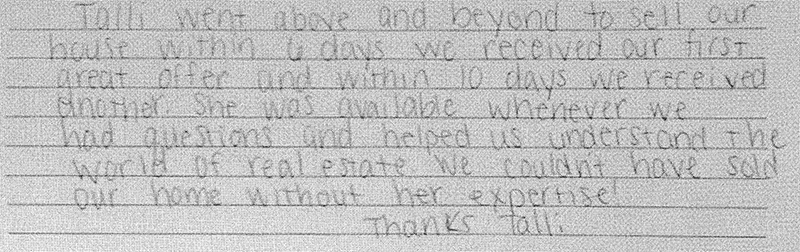 Talli went above and beyond to sell our
house within 6 days we received our first
great offer and within 10 days we received
another. She was available whenever we
had questions and helped us understand the
world of real estate. We couldn't have sold
our home without her expertise!
Thanks Talli